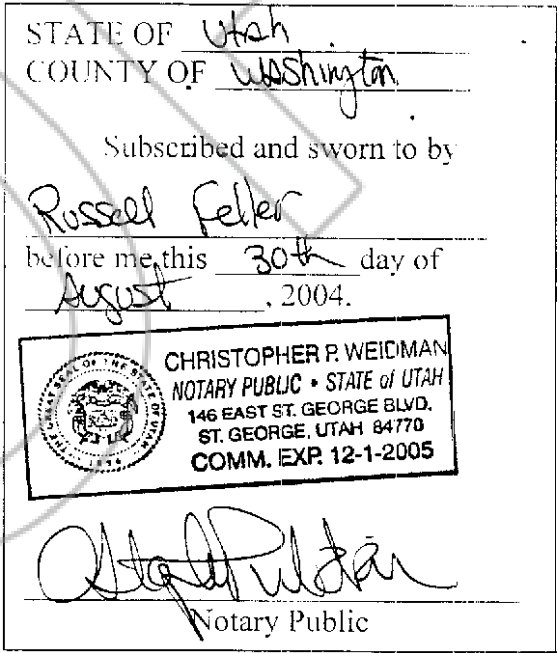 STATE OF Utah
COUNTY OF Washington
Subscribed and sworn to by
Russell Feller
before me this 30th day of
August, 2004.
THE GREAT SEAL OF THE STATE OF UTAH
1896
CHRISTOPHER P. WEIDMAN
NOTARY PUBLIC • STATE of UTAH
146 EAST ST. GEORGE BLVD.
ST. GEORGE, UTAH 84770
COMM. EXP. 12-1-2005
Notary Public